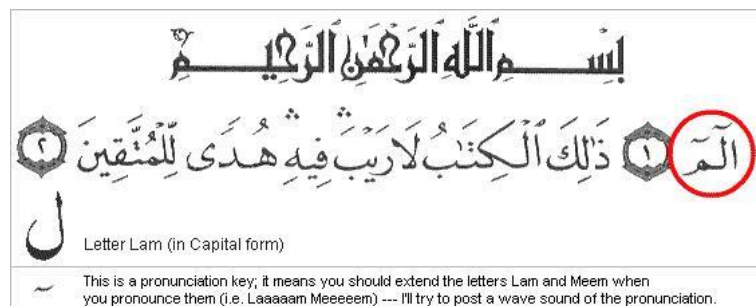 بِسْمِ ٱللَّهِ ٱلرَّحْمَٰنِ ٱلرَّحِيمِ
الٓمٓ ١ ذَٰلِكَ ٱلْكِتَٰبُ لَا رَيْبَ ۛ فِيهِ ۛ هُدًى لِّلْمُتَّقِينَ ٢
ل Letter Lam (in Capital form)
~ This is a pronunciation key; it means you should extend the letters Lam and Meem when
you pronounce them (i.e. Laaaaam Meeeeem) --- I'll try to post a wave sound of the pronunciation.